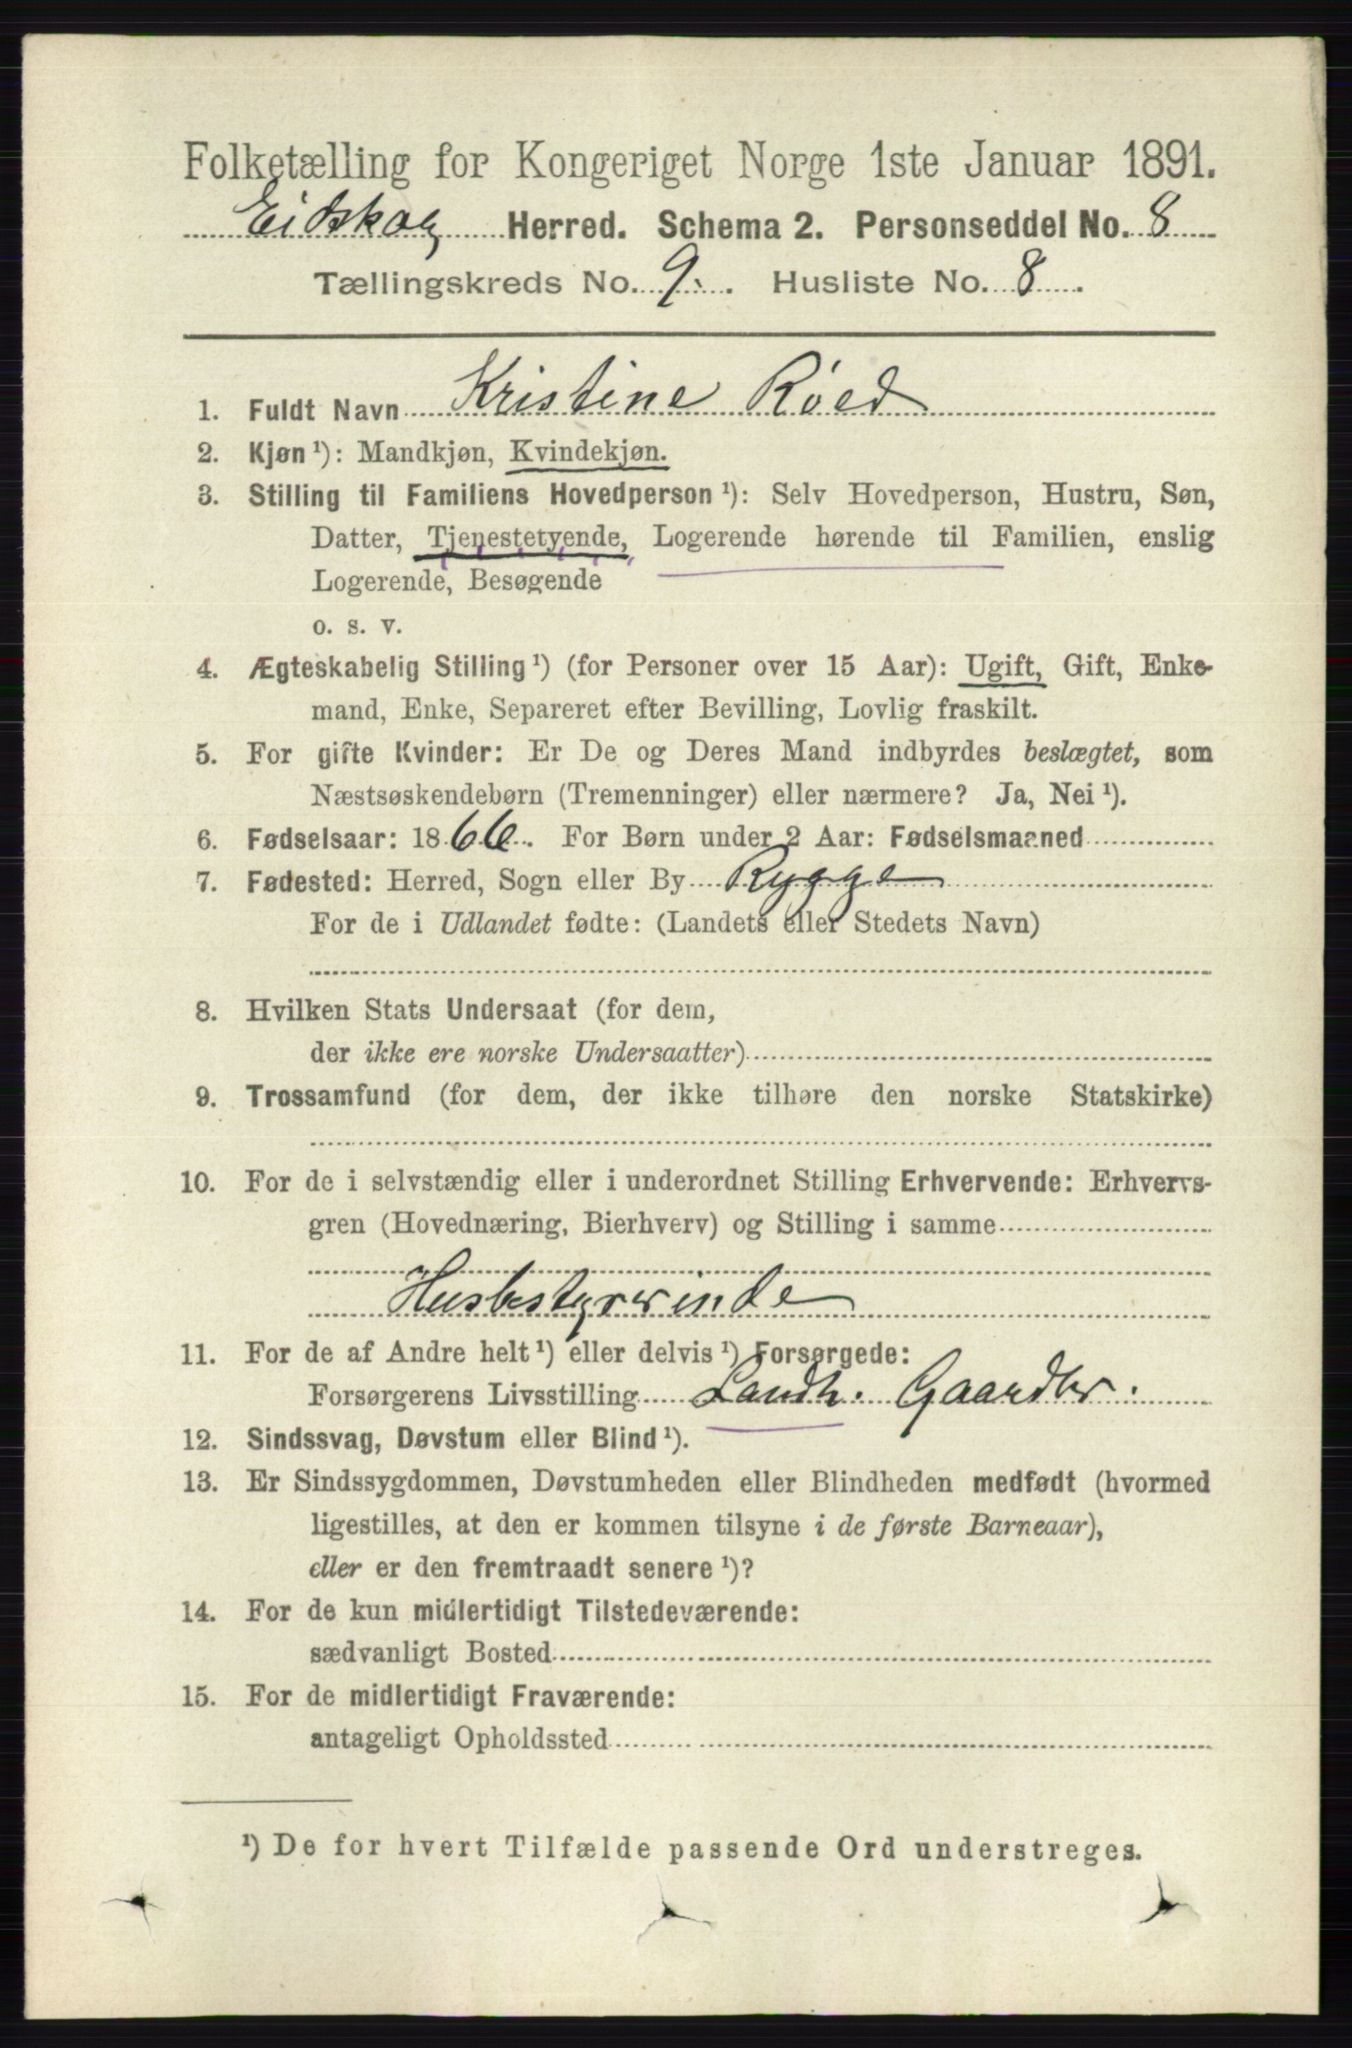 Folketælling for Kongeriget Norge 1ste Januar 1891.
Eidskog Herred. Schema 2. Personseddel No. 8
Tællingskreds No. 9. Husliste No. 8.
1. Fuldt Navn Kristine Röed
2. Kjøn ¹): Mandkjøn, Kvindekjøn.
3. Stilling til Familiens Hovedperson ¹): Selv Hovedperson, Hustru, Søn,
Datter, Tjenestetyende, Logerende hørende til Familien, enslig
Logerende, Besøgende
o. s. v.
4. Ægteskabelig Stilling ¹) (for Personer over 15 Aar): Ugift, Gift, Enke-
mand, Enke, Separeret efter Bevilling, Lovlig fraskilt.
5. For gifte Kvinder: Er De og Deres Mand indbyrdes beslægtet, som
Næstsøskendebørn (Tremenninger) eller nærmere? Ja, Nei ¹).
6. Fødselsaar: 1866. For Børn under 2 Aar: Fødselsmaaned
7. Fødested: Herred, Sogn eller By Rygge
For de i Udlandet fødte: (Landets eller Stedets Navn)
8. Hvilken Stats Undersaat (for dem,
der ikke ere norske Undersaatter)
9. Trossamfund (for dem, der ikke tilhøre den norske Statskirke)
10. For de i selvstændig eller i underordnet Stilling Erhvervende: Erhvervs-
gren (Hovednæring, Bierhverv) og Stilling i samme
Husbestyrerinde
11. For de af Andre helt ¹) eller delvis ¹) Forsørgede:
Forsørgerens Livsstilling Landh. Gaardbr.
12. Sindssvag, Døvstum eller Blind ¹).
13. Er Sindssygdommen, Døvstumheden eller Blindheden medfødt (hvormed
ligestilles, at den er kommen tilsyne i de første Barneaar),
eller er den fremtraadt senere ¹)?
14. For de kun midlertidigt Tilstedeværende:
sædvanligt Bosted
15. For de midlertidigt Fraværende:
antageligt Opholdssted
¹) De for hvert Tilfælde passende Ord understreges.